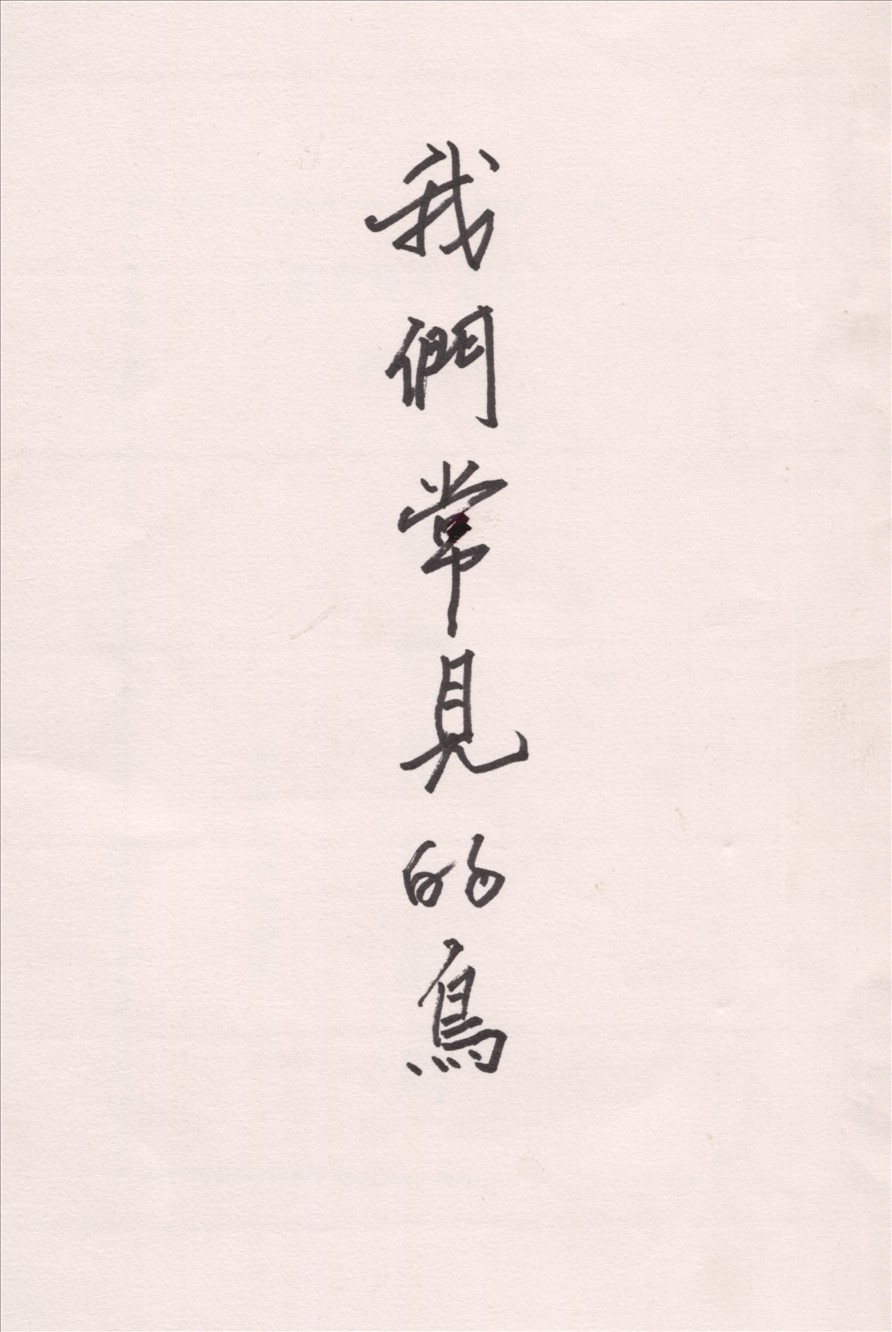 我們常見的鳥